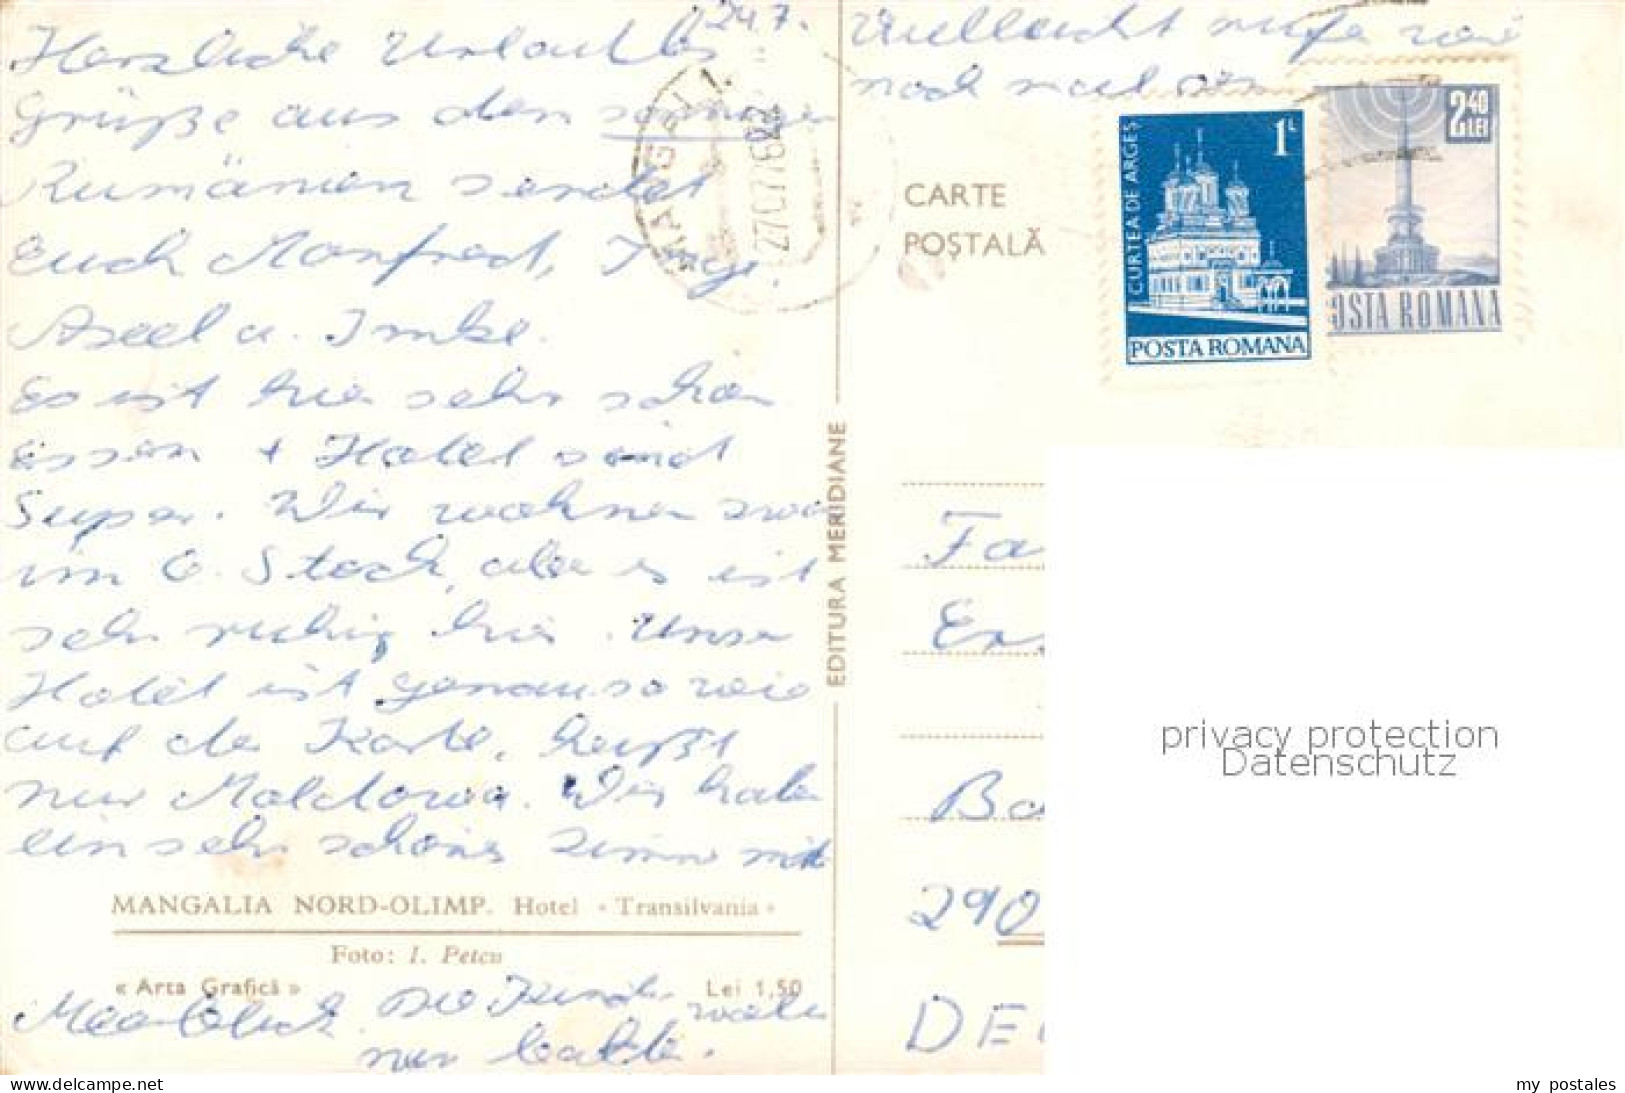 24.7.
Herzliche Urlaubs
Grüße aus dem sonnigen
Rumänien sendet
Euch Manfred, Inge,
Axel u. Imke.
Es ist hier sehr schön
Essen + Hotel sind
Super. Wir wohnen zwar
im 6. Stock, aber es ist
sehr ruhig hier. Unser
Hotel ist genauso wie
auf der Karte, heißt
nur Moldova. Wir haben
ein sehr schönes Zimmer mit
MANGALIA NORD-OLIMP. Hotel «Transilvania»
Foto: I. Petcu
« Arta Grafică »
Lei 1,50
Meerblick. Die Kinder wollen
nur
EDITURA MERIDIANE
Vielleicht rufe wir
noch mal an
CARTE
POȘTALĂ
CURTEA DE ARGEȘ
1L
POSTA ROMANA
2,40
LEI
OSTA ROMANA
MANGALIA
Fa
Er
Ba
290
DE
privacy protection
Datenschutz
www.delcampe.net
my postales